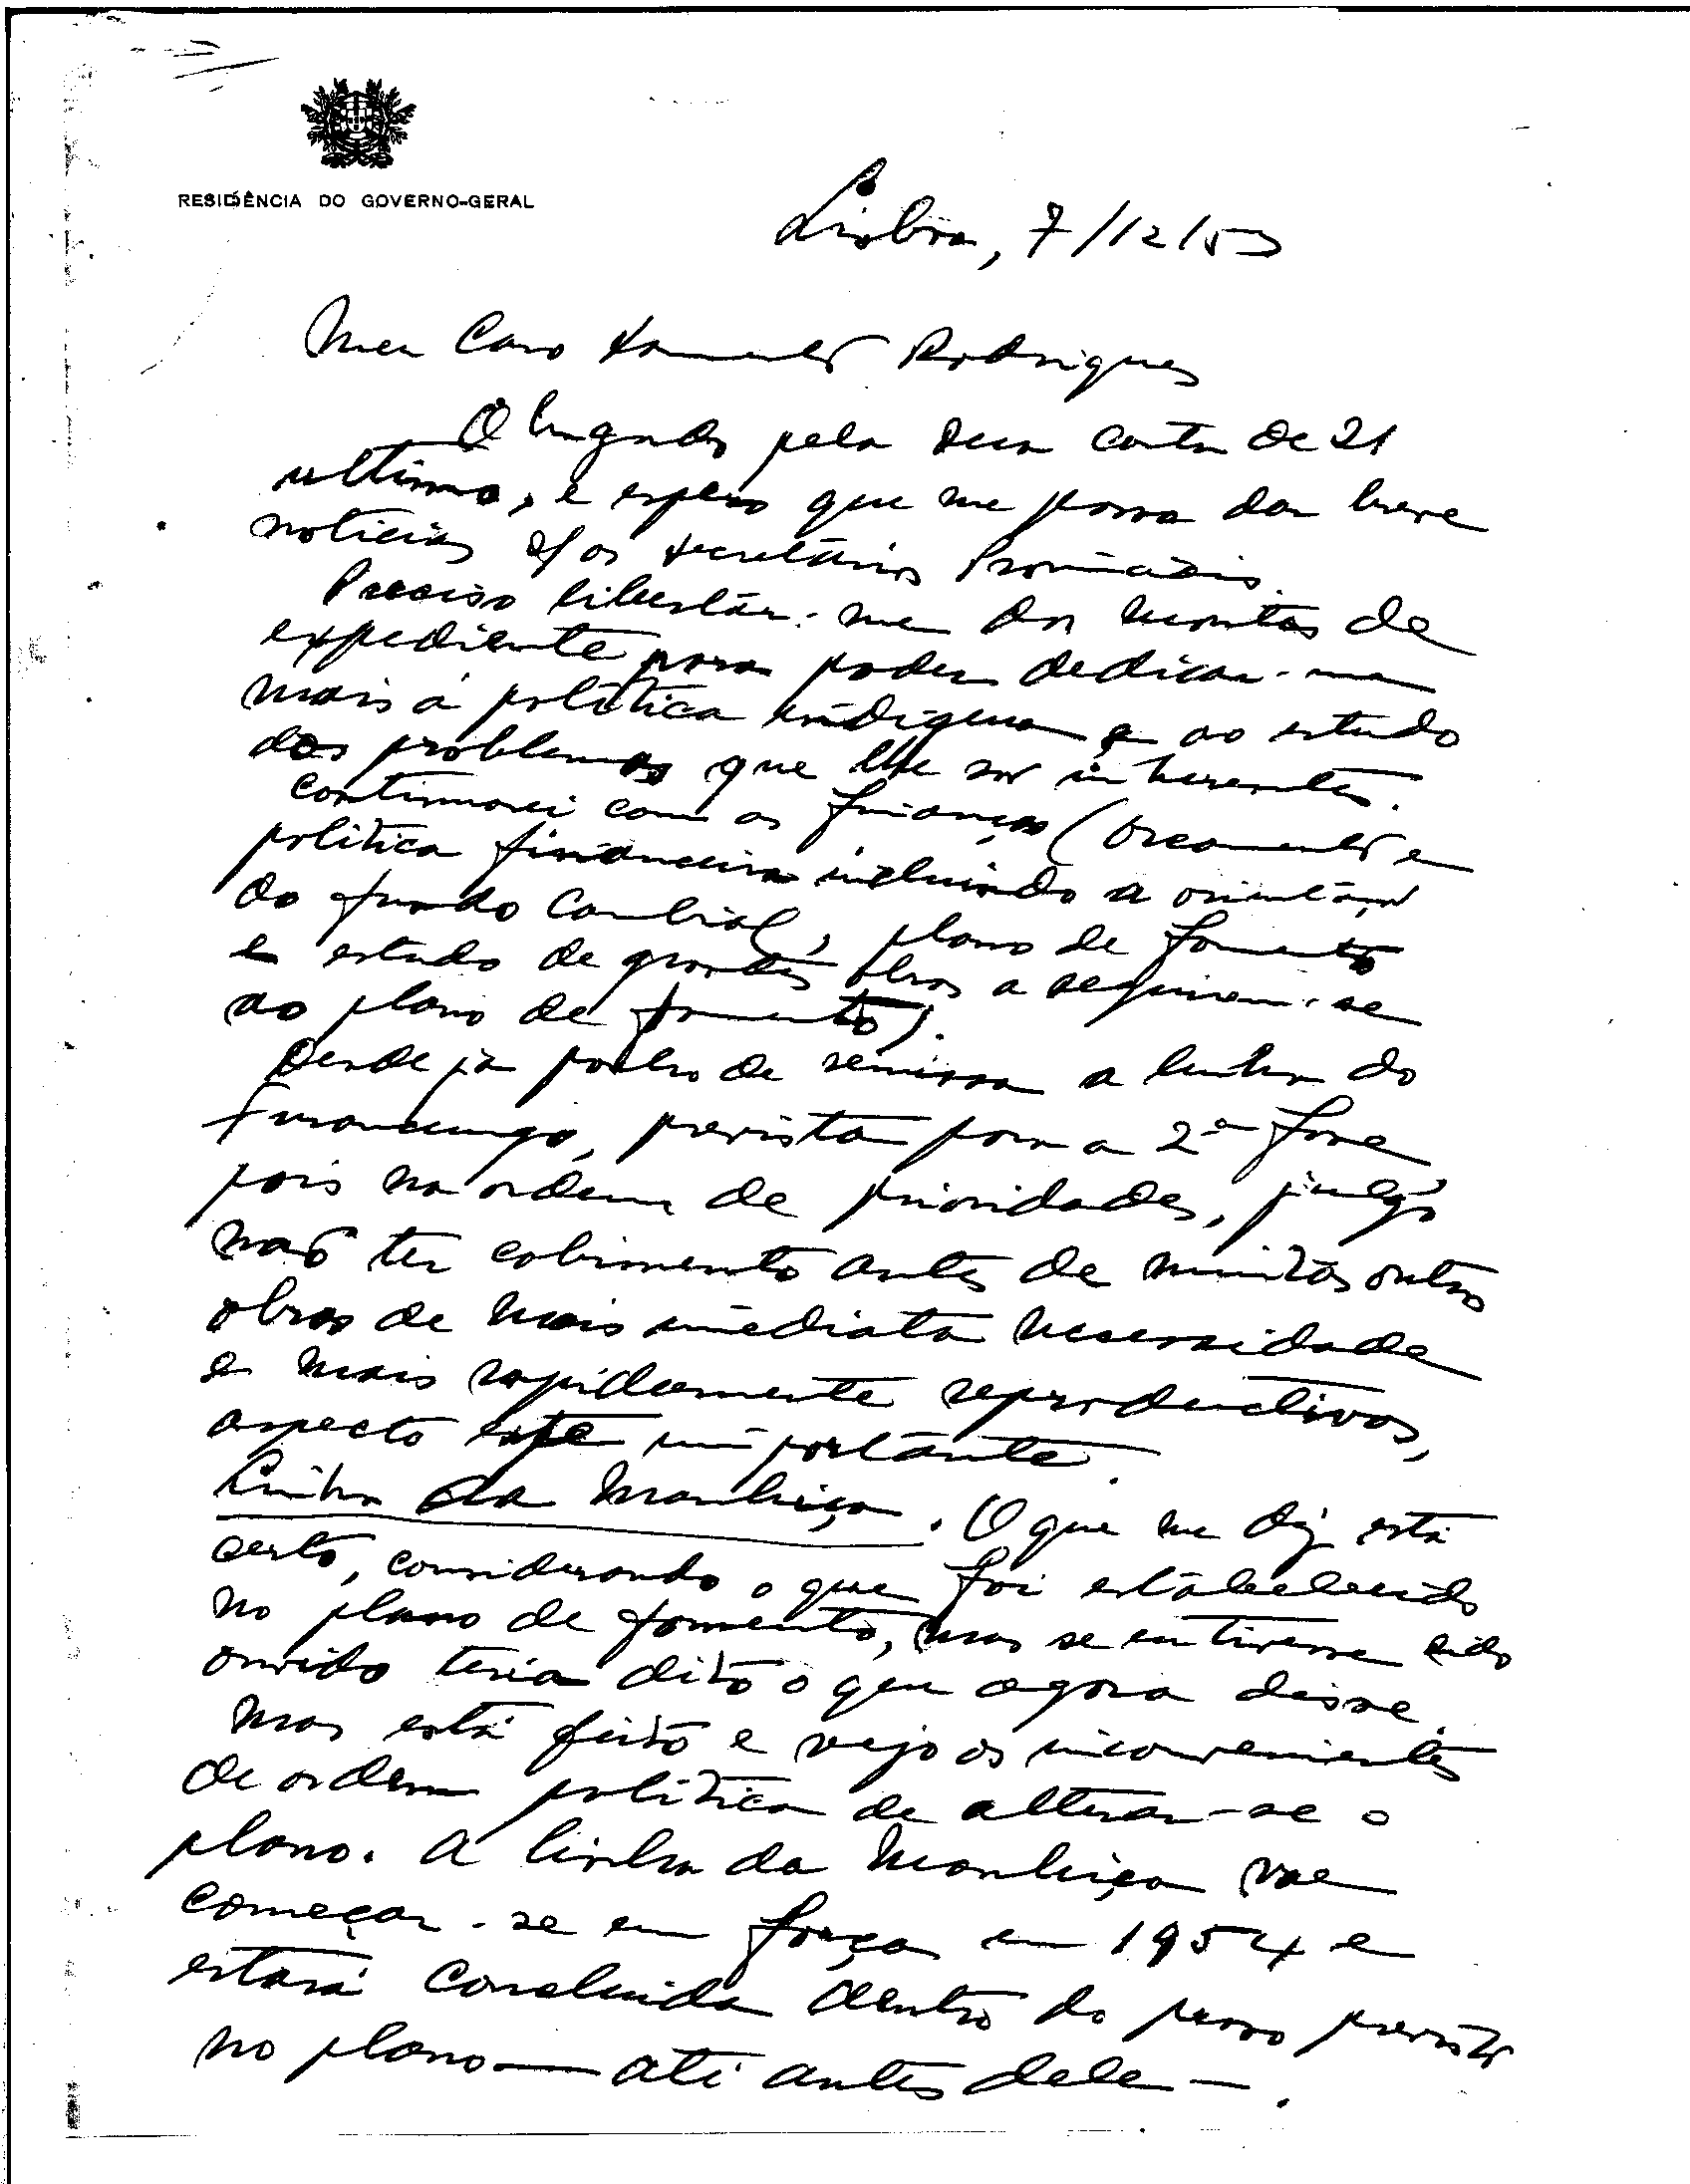 RESIDÊNCIA DO GOVERNO-GERAL
Lisboa, 7/12/53
Meu Caro Rodrigues
Obrigado pela sua carta de 21
ultimo, e espero que me possa dar breve
noticias s/ os secretários Provinciais.
Preciso libertar-me dos montes de
expediente para poder dedicar-me
mais á politica indigena e ao estudo
dos problemas que lhe são inherentes.
Continuarei com as finanças (orçamento e
politica financeira incluindo a orientação
do fundo cambial, plano de fomento
e estudo de grandes obras a seguirem-se
ao plano de fomento).
Desde já ponho de remissa a linha do
Furancungo, prevista para a 2ª fase
pois na ordem de prioridades, julgo
não ter cabimento antes de muitas outras
obras de mais imediata necessidade
e mais rapidamente reproductivas,
aspecto este importante.
Linha da Manhiça. O que me diz está
certo, considerando o que foi estabelecido
no plano de fomento, mas se eu tivesse sido
ouvido teria dito o que agora disse.
Mas está feito e vejo os inconvenientes
de ordem politica de alterar-se o
plano. A linha da Manhiça vae
começar-se em força em 1954 e
estará concluida dentro do prazo previsto
no plano — até antes dele —.